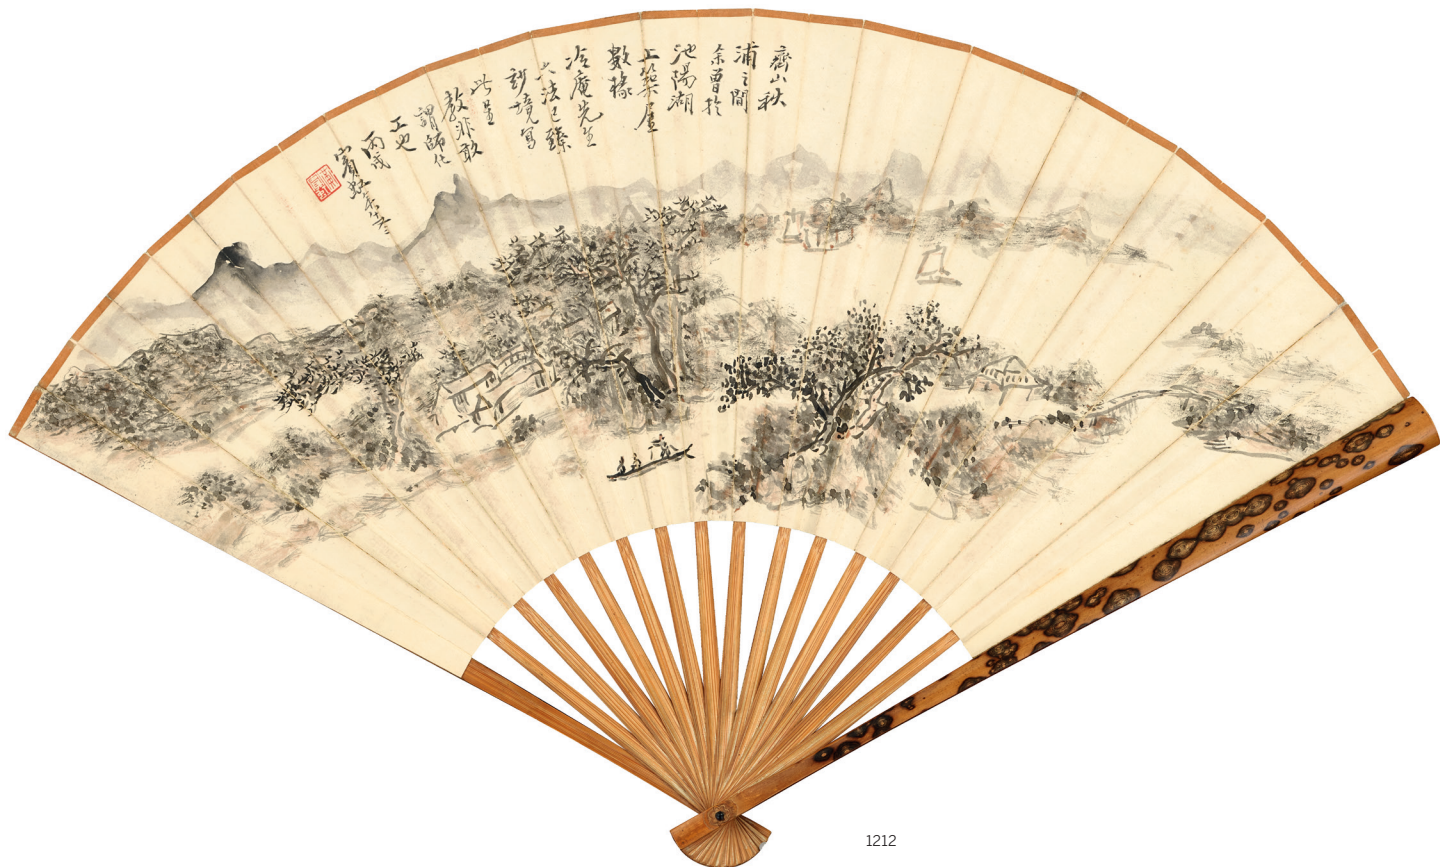 齊山秋
浦之間
余曾於
池陽湖
上築屋
數椽
冷庵先生
六法已臻
妙境寫
此呈
教非敢
謂師化
工也
丙戌
賓虹年八十又三
1212